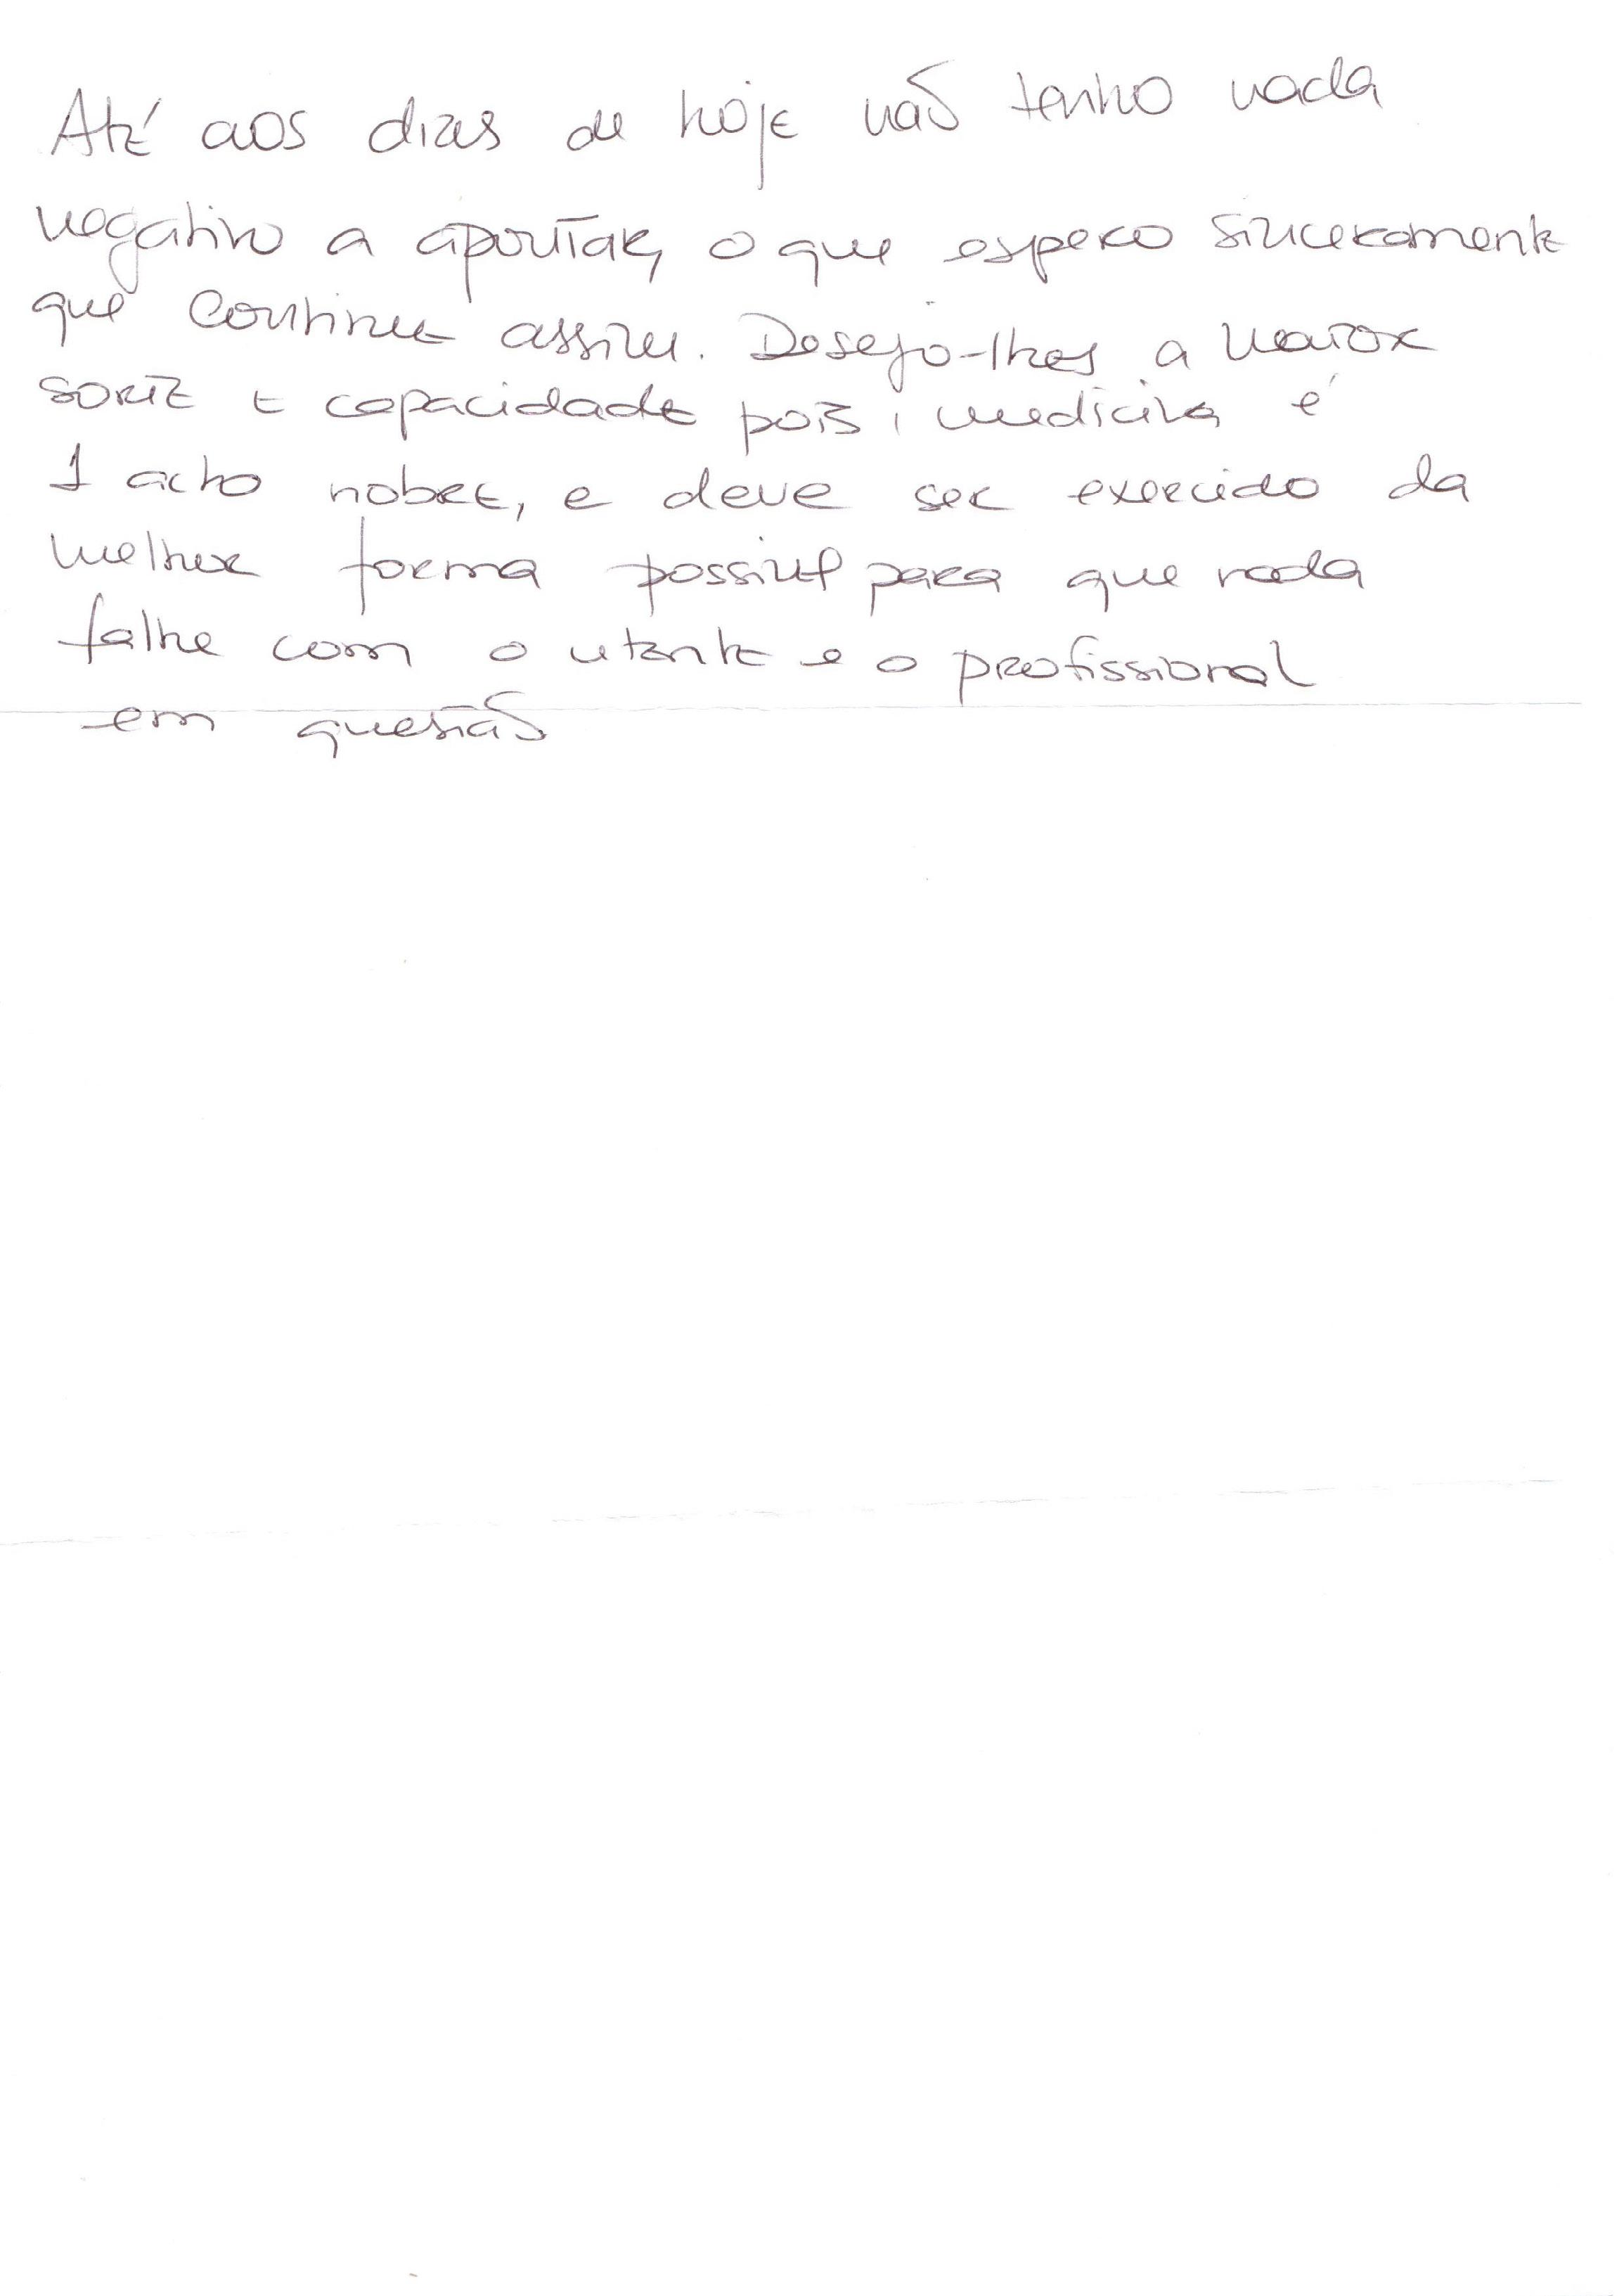 Até aos dias de hoje não tenho nada
negativo a apontar, o que espero sinceramente
que continue assim. Desejo-lhes a maior
sorte e capacidade pois, medicina é
1 acto nobre, e deve ser exercido da
melhor forma possivel para que nada
falhe com o utente e o profissional
em questão